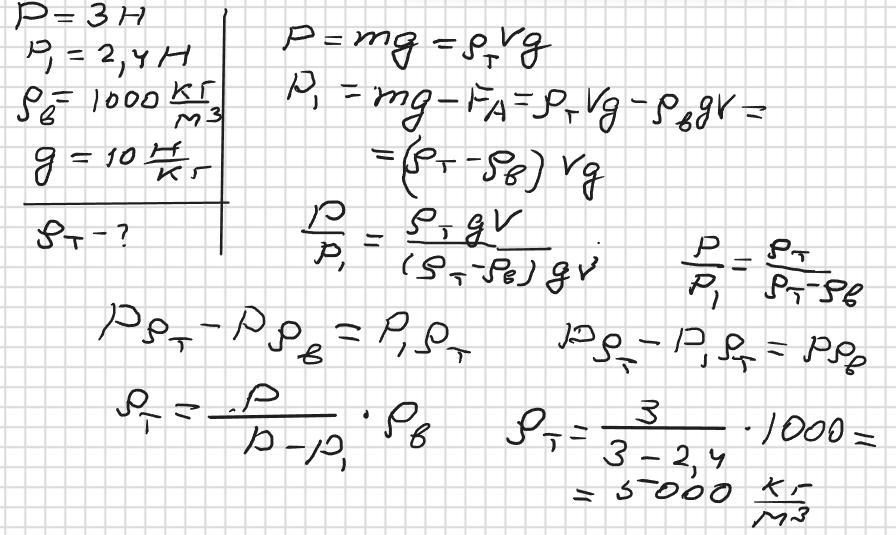 P = 3 Н
P₁ = 2,4 Н
ρв = 1000 кг/м³
g = 10 Н/кг
ρт - ?
P = mg = ρт Vg
P₁ = mg - FA = ρт Vg - ρв gV =
= (ρт - ρв) Vg
P/P₁ = ρт gV / (ρт - ρв) gV
P/P₁ = ρт / ρт - ρв
Pρт - Pρв = P₁ρт
Pρт - P₁ρт = Pρв
ρт = P / P - P₁ · ρв
ρт = 3 / 3 - 2,4 · 1000 =
= 5000 кг/м³